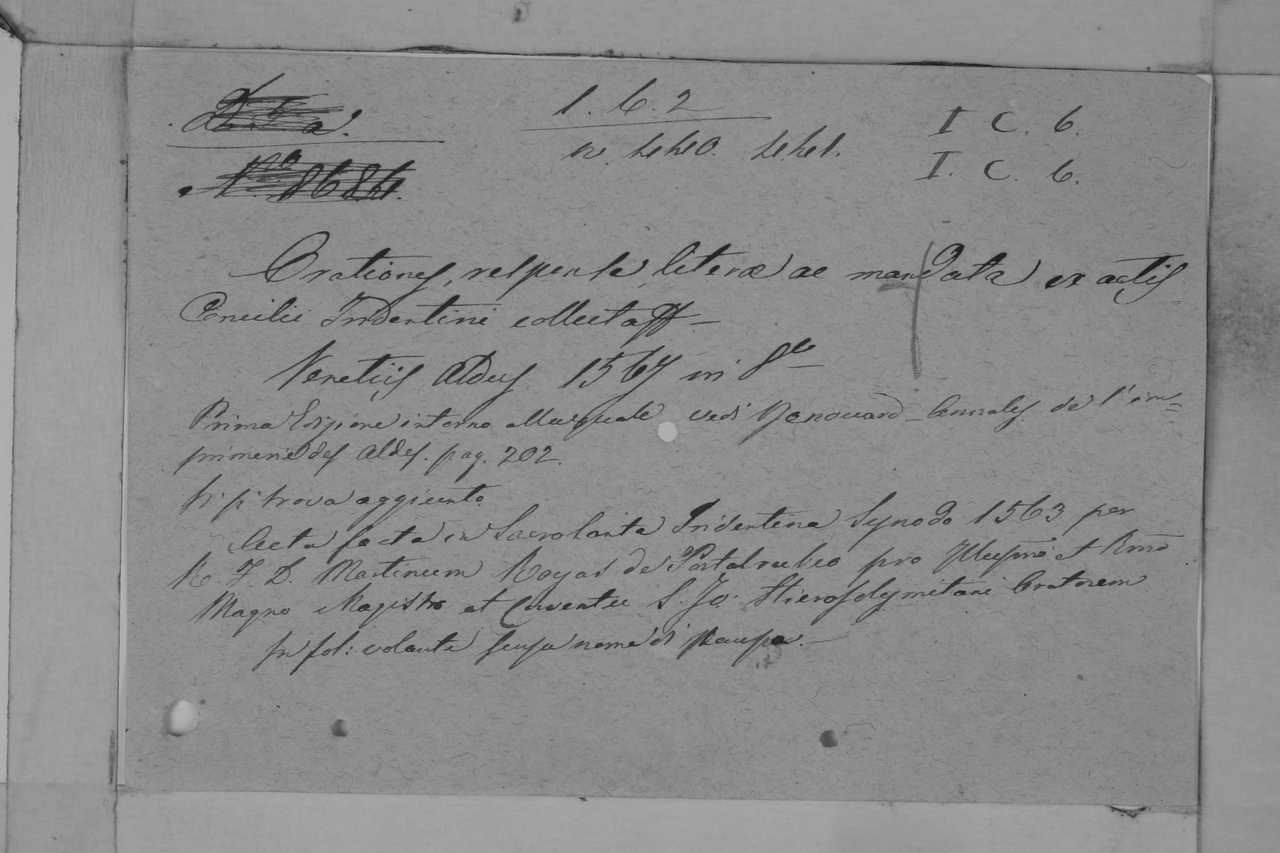 1. 6. 2
I C. 6.
I. C. 6.
No 8686.
Orationes, responsa, literæ ac mandata ex actis
Concilii Tridentini collecta ff —
Venetiis Aldus 1567 in 8o —
Prima Edizione intorno alla quale vedi Renouard – Annales de l'im=
primerie des Aldes. pag. 202.
Vi si trova aggiunto
Acta facta in Sacrosanta Tridentina Synodo 1563 per
R. F. D. Martinum Royas de Portalrubeo pro Illustmo et Rmo
Magno Magistro et Conventu S. Jo: Hierosolymitani Oratorem
in fol: volante senza nome di stampa. —